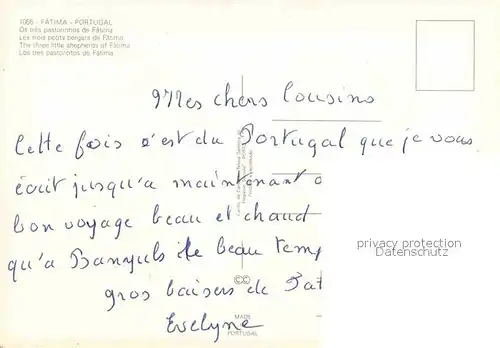 1055 - FÁTIMA - PORTUGAL
Os três pastorinhos de Fátima
Les trois petits bergers de Fátima
The three little shepherds of Fátima
Los tres pastorcitos de Fátima
Mes chers Cousins
Cette fois c'est du Portugal que je vous
écrit jusqu'a maintenant
bon voyage beau et chaud
qu'a Banyuls le beau temp
gros baisers de Pat
Evelyne
privacy protection
Datenschutz
MADE
PORTUGAL